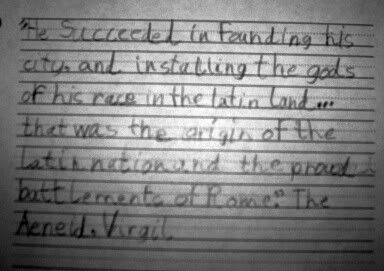 "He Succeeded in founding his
city, and installing the gods
of his race in the latin land...
that was the origin of the
Latin nation and the proud
battlements of Rome." The
Aeneid. Virgil